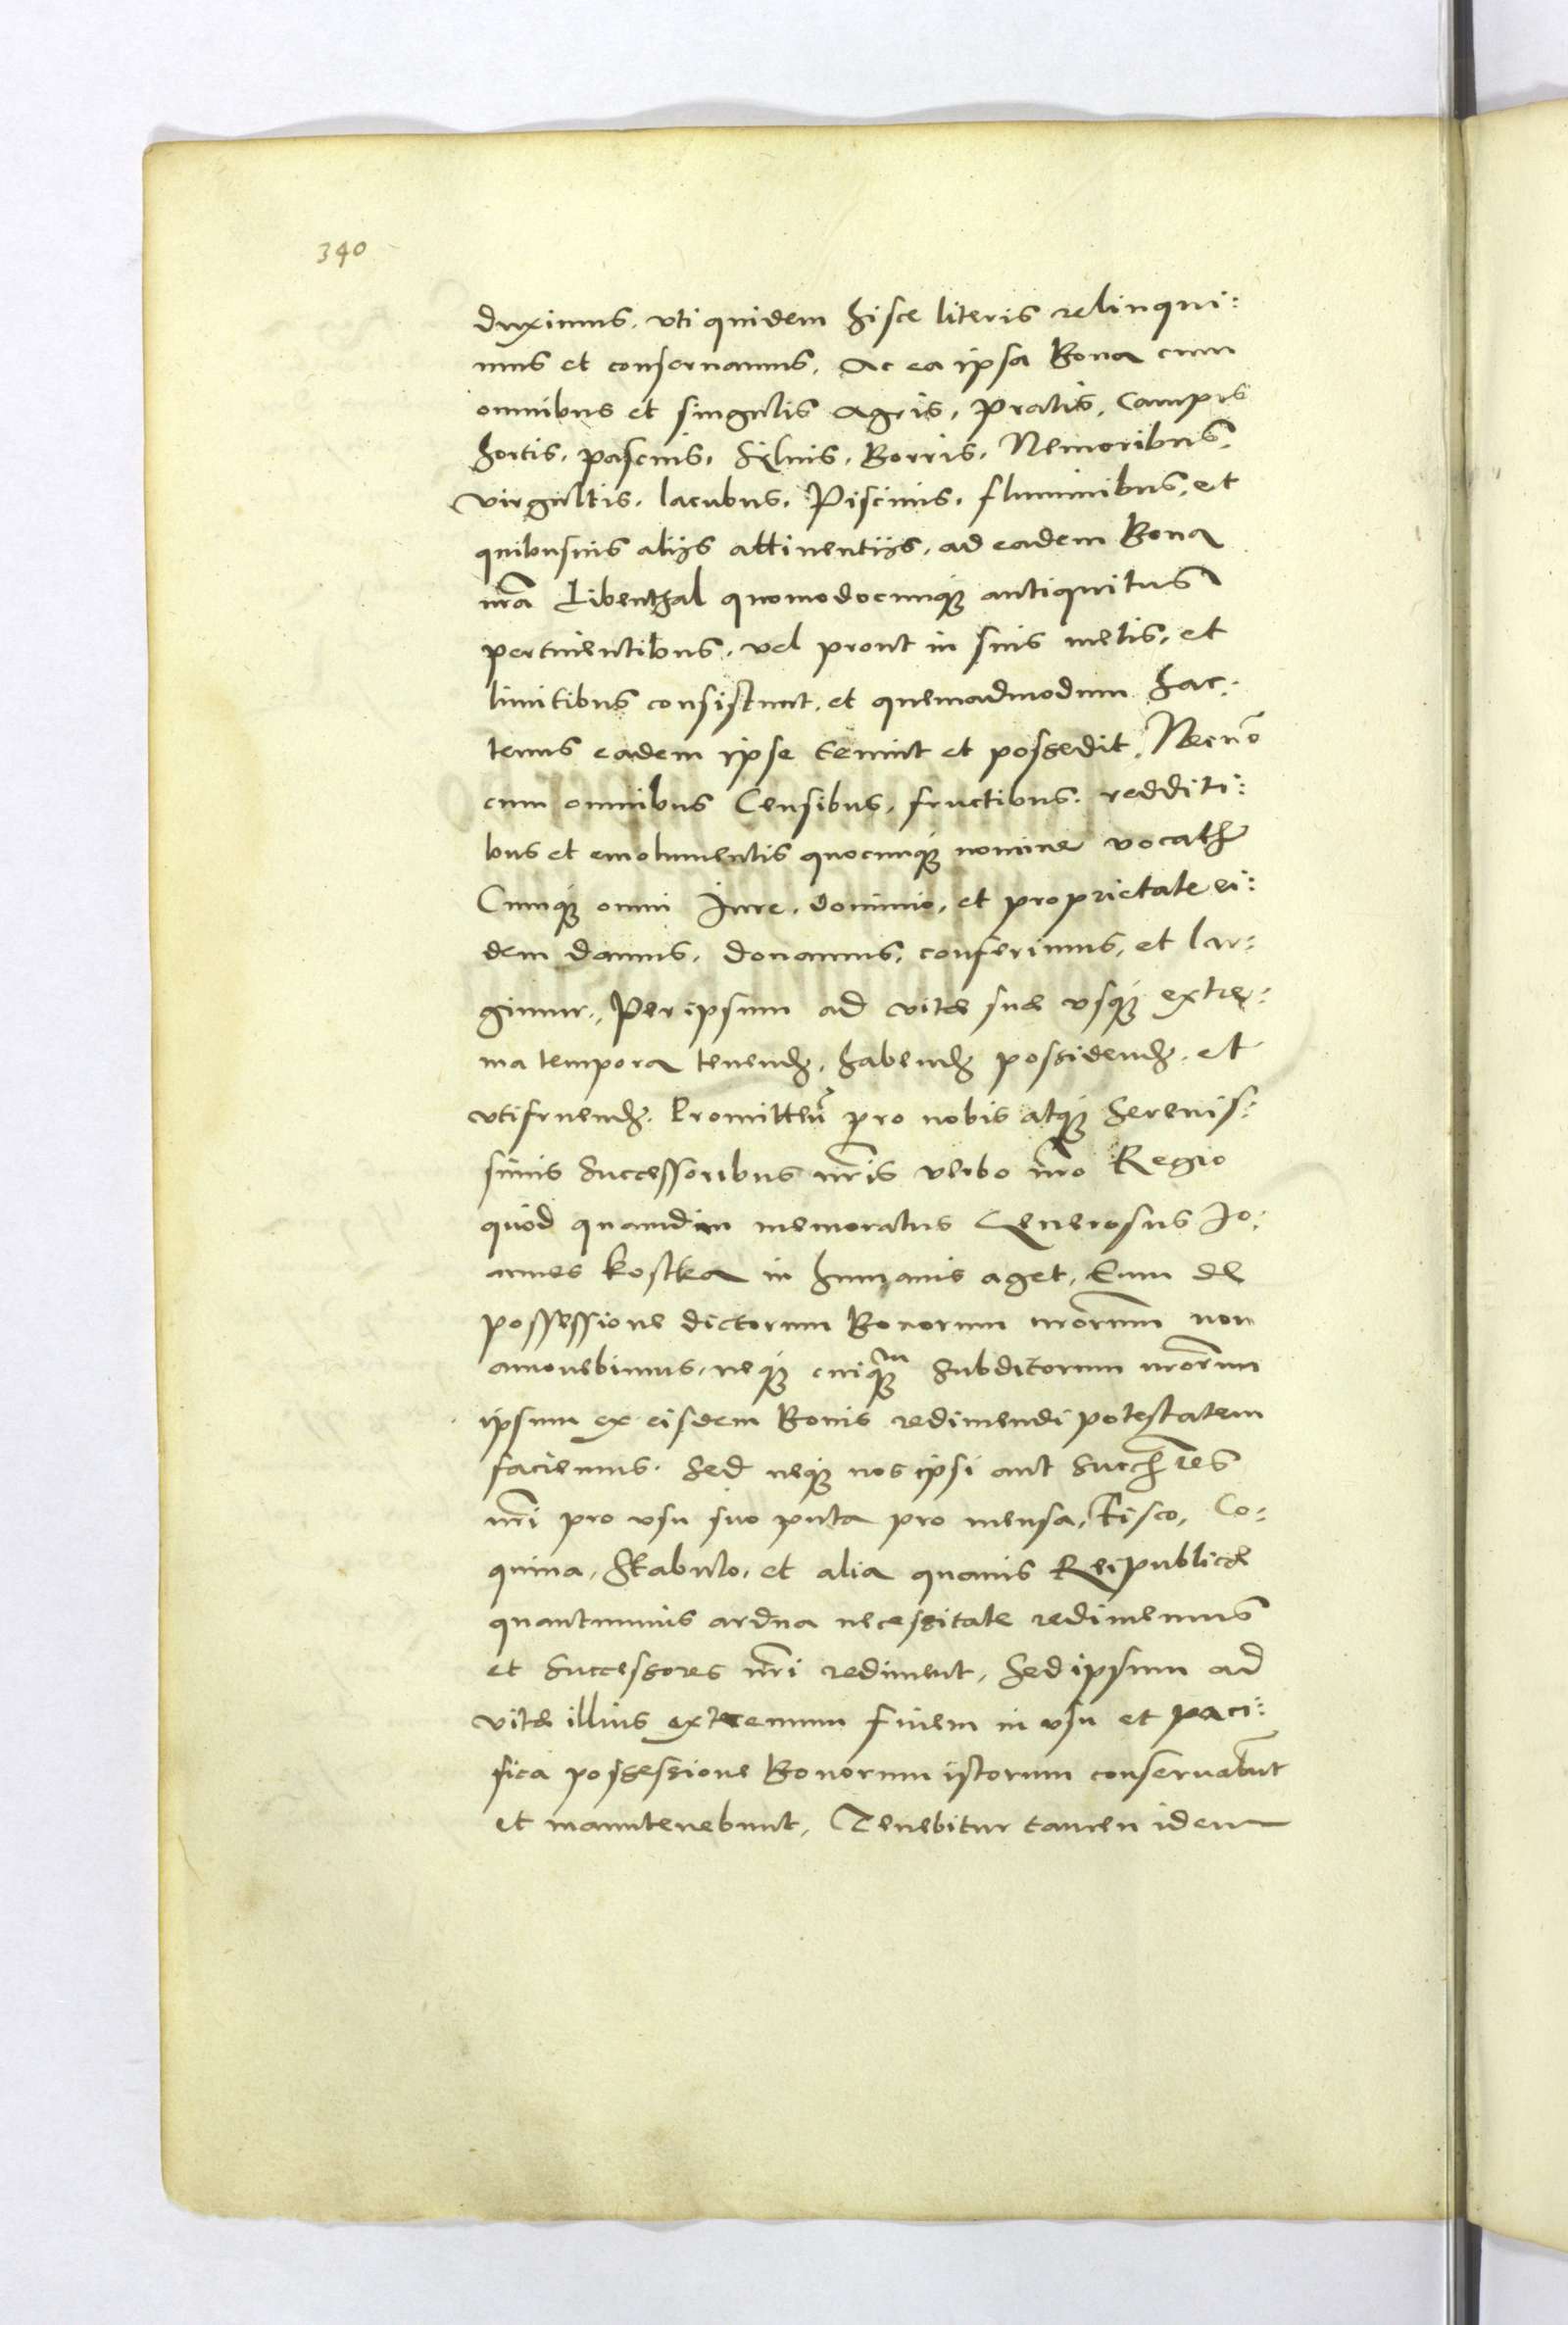 340
duximus, vti quidem hisce literis relinqui:
mus et conseruamus, Ac ea ipsa Bona cum
omnibus et singulis Agris, Pratis, Campis
hortis, pascuis, Syluis, Borris, Nemoribus,
virgultis, lacubus, Piscinis, fluminibus, et
quibusuis alijs attinentijs, ad eadem Bona
nr̃a Libenthal quomodocunq; antiquitus
pertinentibus, vel prout in suis metis, et
limitibus consistunt, et quemadmodum hac:
tenus eadem ipse tenuit et possedit, Necnõ
cum omnibus Censibus, fructibus, redditi:
bus et emolumentis quocunq; nomine vocatꝭ
Cumq; omni Iure, dominio, et proprietate ei:
dem damus, donamus, conferimus, et lar:
gimur, Per ipsum ad vitę suę vsq; extre:
ma tempora tenendꝭ, habendꝭ possidendꝭ, et
vtifruendꝭ. Promitteñ pro nobis atq; Serenis:
simis Successoribus nr̃is verbo nr̃o Regio
quod quamdiu memoratus Generosus Jo:
annes Kostka in humanis aget, Eum de
possessione dictorum Bonorum nr̃orum non
amouebimus, neq; cuiq;m Subditorum nr̃orum
ipsum ex eisdem Bonis redimendi potestatem
faciemus. Sed neq; nos ipsi aut Succ̃res
nr̃i pro vsu suo puta pro mensa, Fisco, Co:
quina, Stabulo, et alia quauis Reipublicę
quantumuis ardua necessitate redimemus
et Successores nr̃i rediment, Sed ipsum ad
vitę illius extremum finem in vsu et paci:
fica possessione Bonorum istorum conseruabũt
et manutenebunt, Tenebitur tamen idem